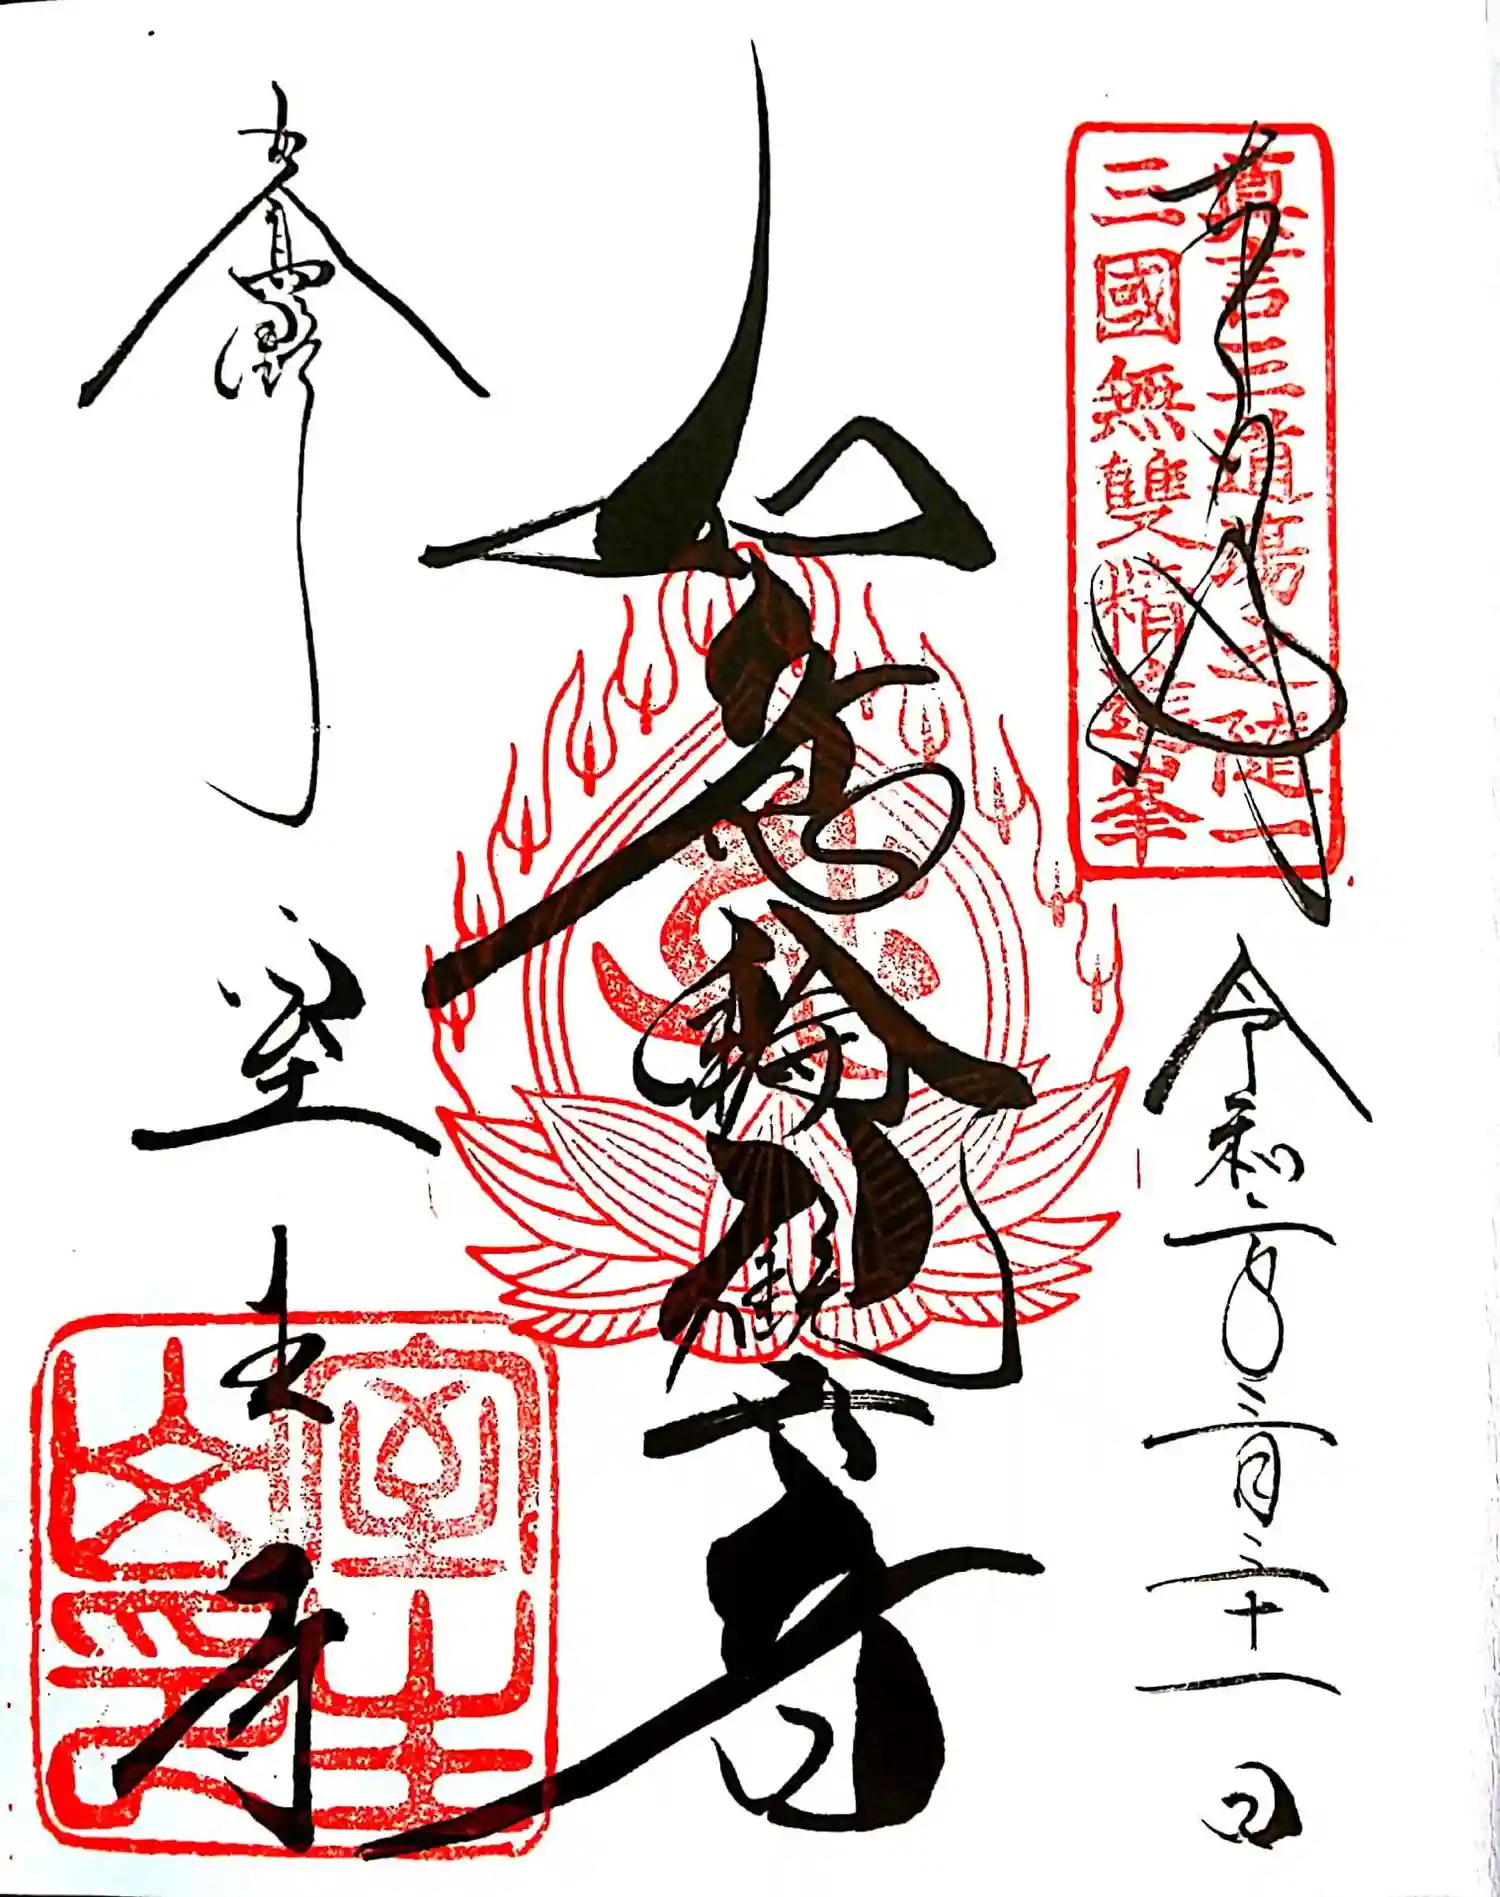 奉拝
真言三道場之随一
三國無雙精進峯
令和二年三月二十一日
如意輪観音
女人高野
室生寺